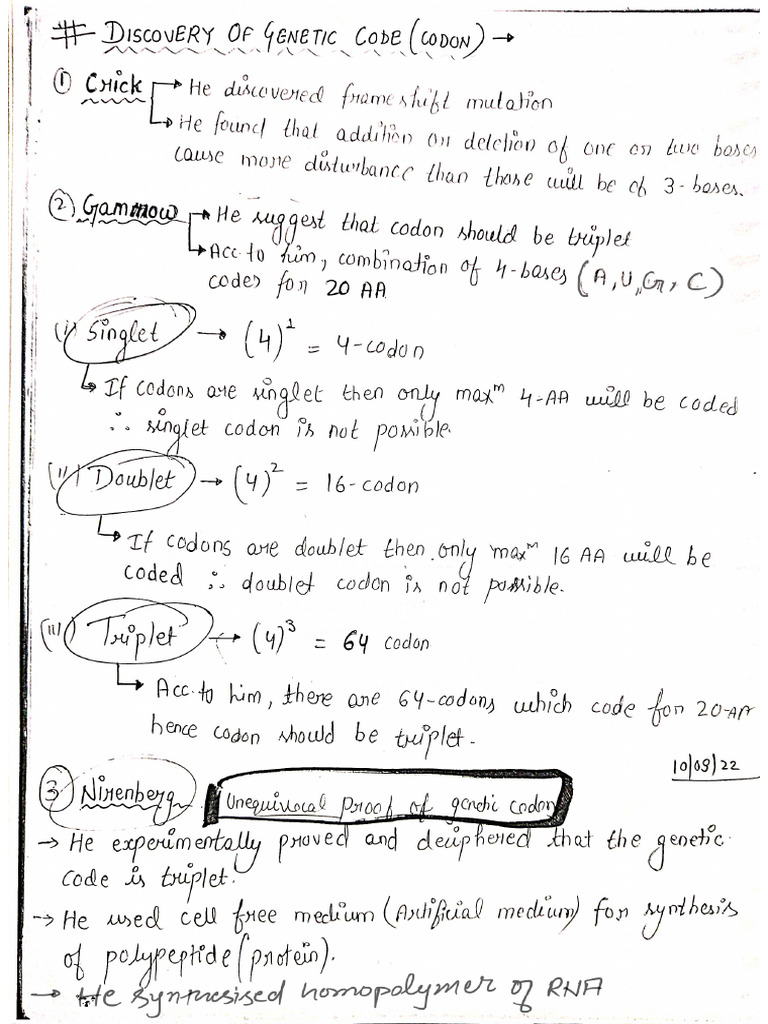 # DISCOVERY OF GENETIC CODE (CODON) →
① Crick → He discovered frameshift mutation
→ He found that addition or deletion of one or two bases
cause more disturbance than those will be of 3-bases.
② Gammow → He suggest that codon should be triplet
→ Acc. to him, combination of 4-bases (A, U, G, C)
codes for 20 AA
(i) Singlet → (4)¹ = 4-codon
↳ If codons are singlet then only maxᵐ 4-AA will be coded
∴ singlet codon is not possible.
(ii) Doublet → (4)² = 16-codon
↳ If codons are doublet then only maxᵐ 16 AA will be
coded ∴ doublet codon is not possible.
(iii) Triplet → (4)³ = 64 codon
↳ Acc. to him, there are 64-codons which code for 20-AA
hence codon should be triplet.
10/09/22
③ Nirenberg Unequivocal proof of genetic codon
→ He experimentally proved and deciphered that the genetic
code is triplet.
→ He used cell free medium (Artificial medium) for synthesis
of polypeptide (protein).
→ He synthesised homopolymer of RNA